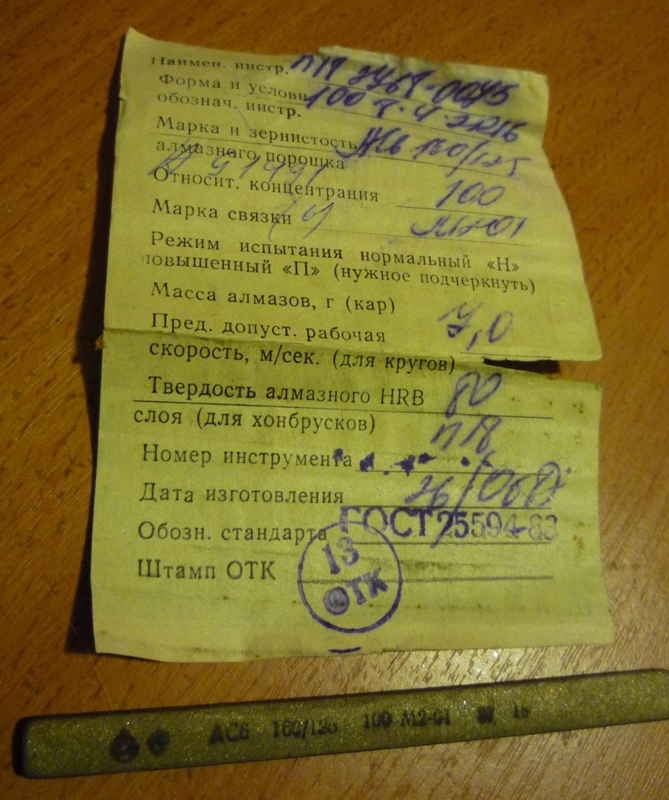 Наимен. инстр.
Форма и услови
обознач. инстр. 100
Марка и зернистость АС6 160/125
алмазного порошка
Относит. концентрация 100
Марка связки М2-01
Режим испытания нормальный «Н»
повышенный «П» (нужное подчеркнуть)
Масса алмазов, г (кар)
Пред. допуст. рабочая
скорость, м/сек. (для кругов)
Твердость алмазного HRB 80
слоя (для хонбрусков)
Номер инструмента
Дата изготовления
Обозн. стандарта ГОСТ 25594-83
Штамп ОТК
13
ОТК
АС6 160/125 100 М2-01 18